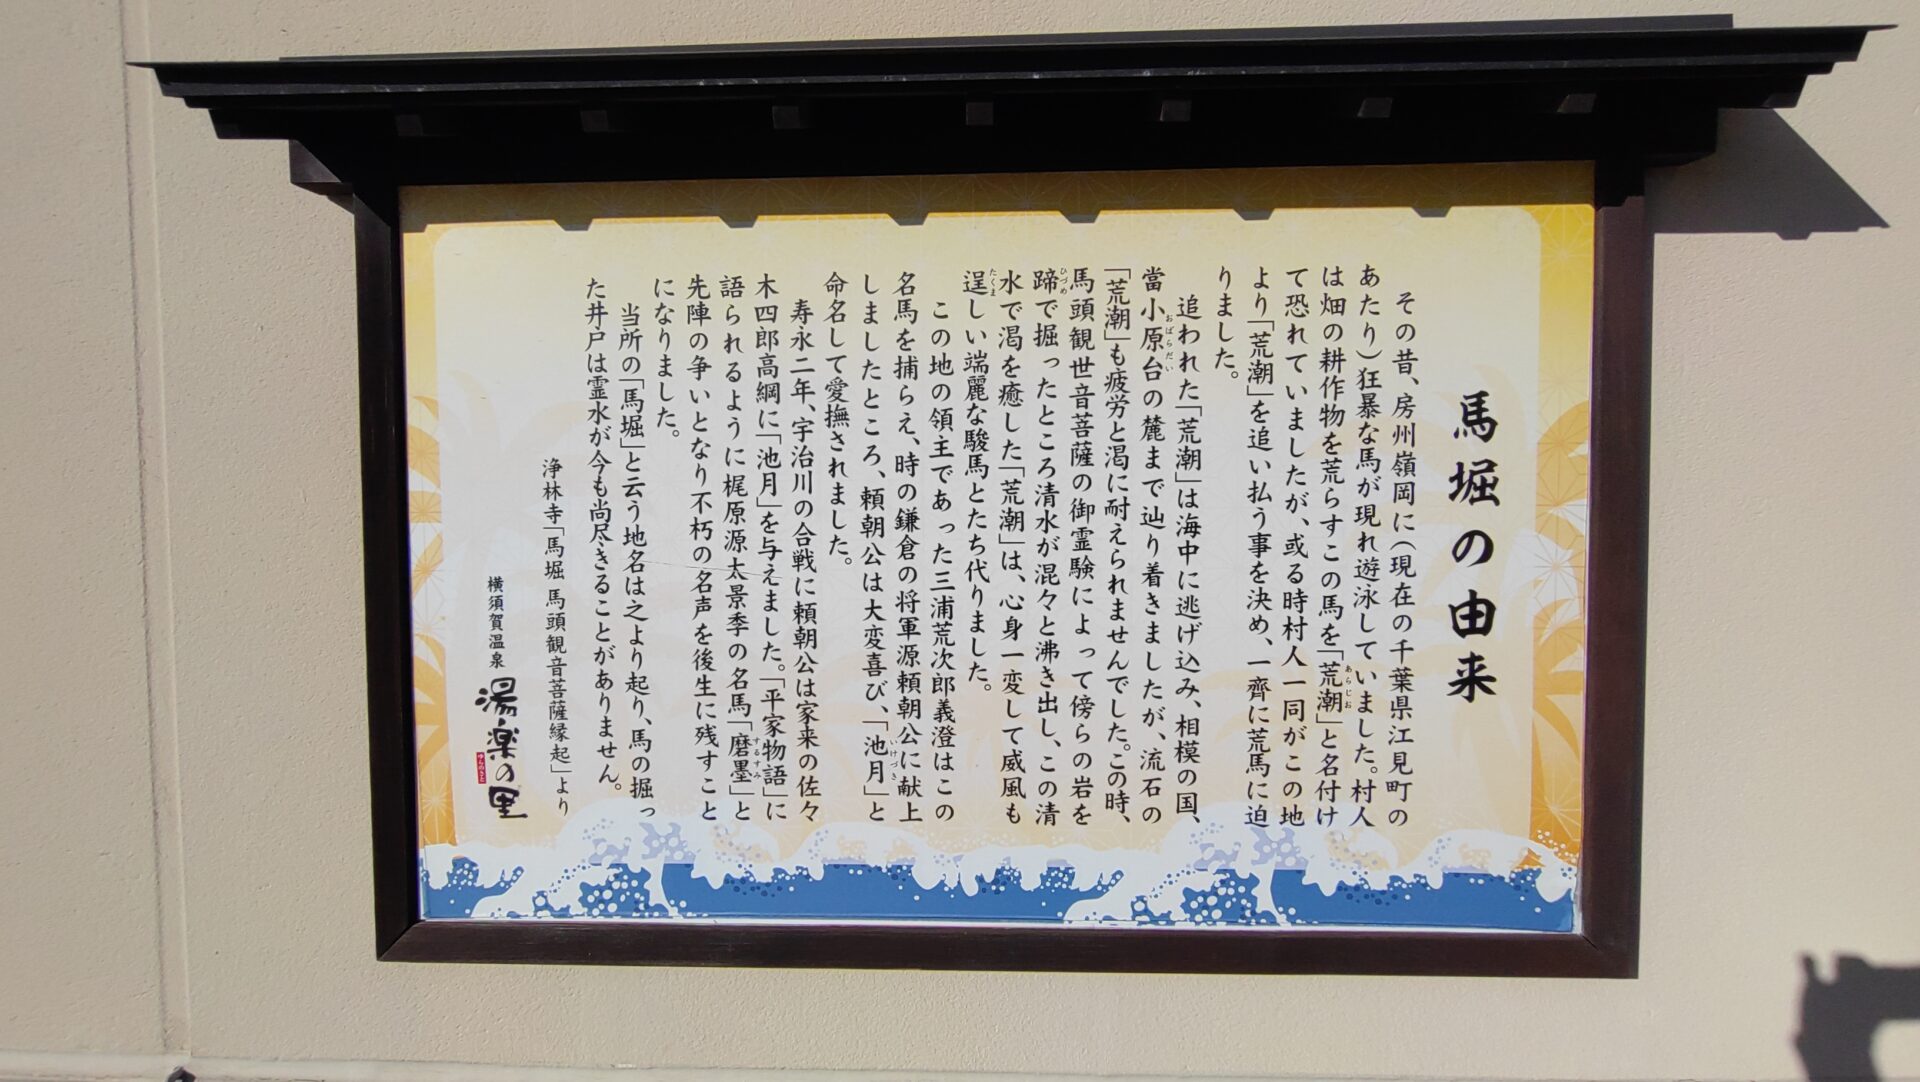 馬堀の由来
その昔、房州嶺岡に(現在の千葉県江見町の
あたり)狂暴な馬が現れ遊泳していました。村人
は畑の耕作物を荒らすこの馬を「荒潮」と名付け
あらじお
て恐れていましたが、或る時村人一同がこの地
より「荒潮」を追い払う事を決め、一齊に荒馬に迫
りました。
追われた「荒潮」は海中に逃げ込み、相模の国、
當小原台の麓まで辿り着きましたが、流石の
おばらだい
「荒潮」も疲労と渇に耐えられませんでした。この時、
馬頭観世音菩薩の御霊験によって傍らの岩を
蹄で掘ったところ清水が混々と沸き出し、この清
ひづめ
水で渇を癒した「荒潮」は、心身一変して威風も
逞しい端麗な駿馬とたち代りました。
たくま
この地の領主であった三浦荒次郎義澄はこの
名馬を捕らえ、時の鎌倉の将軍源頼朝公に献上
しましたところ、頼朝公は大変喜び、「池月」と
いけづき
命名して愛撫されました。
寿永二年、宇治川の合戦に頼朝公は家来の佐々
木四郎高綱に「池月」を与えました。「平家物語」に
語られるように梶原源太景季の名馬「磨墨」と
するすみ
先陣の争いとなり不朽の名声を後生に残すこと
になりました。
当所の「馬堀」と云う地名は之より起り、馬の掘っ
た井戸は霊水が今も尚尽きることがありません。
浄林寺「馬堀 馬頭観音菩薩縁起」より
横須賀温泉 湯楽の里
ゆらのさと